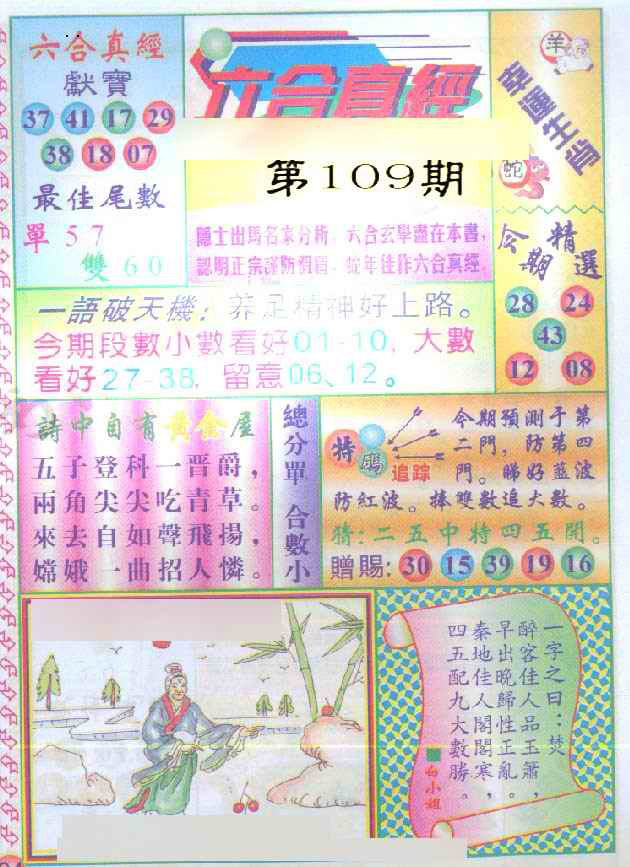 六合真經
獻寶
37 41 17 29
38 18 07
最佳尾數
單 5 7
雙 6 0
六合真經
第109期
隱士出馬名家分析，六合玄學盡在本書，
認明正宗謹防假冒，蛇年佳作六合真經
羊
幸運生肖
蛇
今期精選
28 24
43
12 08
一語破天機：养足精神好上路。
今期段數小數看好01-10，大數
看好27-38，留意06、12。
詩中自有黃金屋
五子登科一晋爵，
兩角尖尖吃青草。
來去自如聲飛揚，
嫦娥一曲招人憐。
總分單 合數小
特碼
追踪
今期預測于第
二門，防第四
門。睇好蓝波
防紅波。捧雙數追大數。
猜：二五中特四五開。
贈賜：30 15 39 19 16
一字之曰：焚
醉容佳人品玉簫，
早出晚歸性正亂。
秦地佳人閣閣寒，
四五配九大數勝。
白小姐